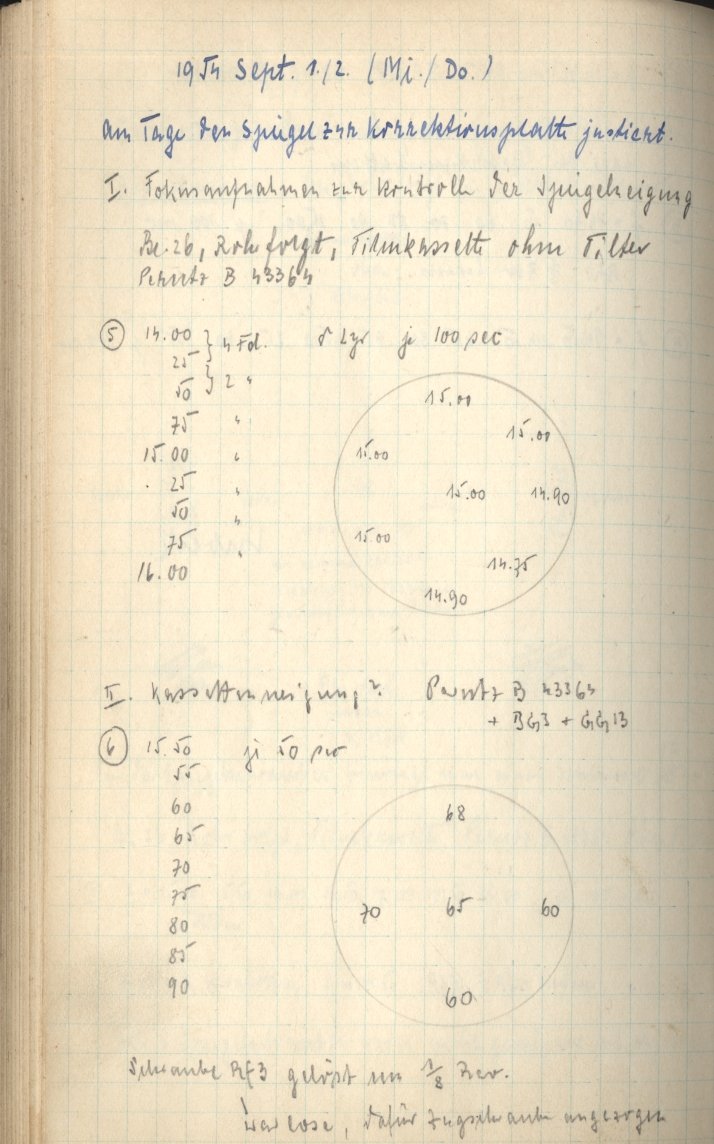 1954 Sept. 1./2. (Mi./Do.)
am Tage den Spiegel zur Korrektionsplatte justiert.
I. Fokusaufnahmen zur Kontrolle der Spiegelneigung
Be. 26, Rohr folgt, Filmkassette ohne Filter
Perutz B 43364
⑤ 14.00 } 4 Fd. δ Lyr je 100 sec
25
50 } 2 "
75 "
15.00 "
. 25 "
50 "
75 "
16.00
15.00
15.00
15.00
15.00 14.90
15.00
14.75
14.90
II. Kassettenneigung? Perutz B 43364
+ BG3 + GG13
⑥ 15.50 je 50 sec
55
60
65
70
75
80
85
90
68
70 65 60
60
Schraube gelöst um 1/8 Rev.
war lose, dafür Zugschraube angezogen